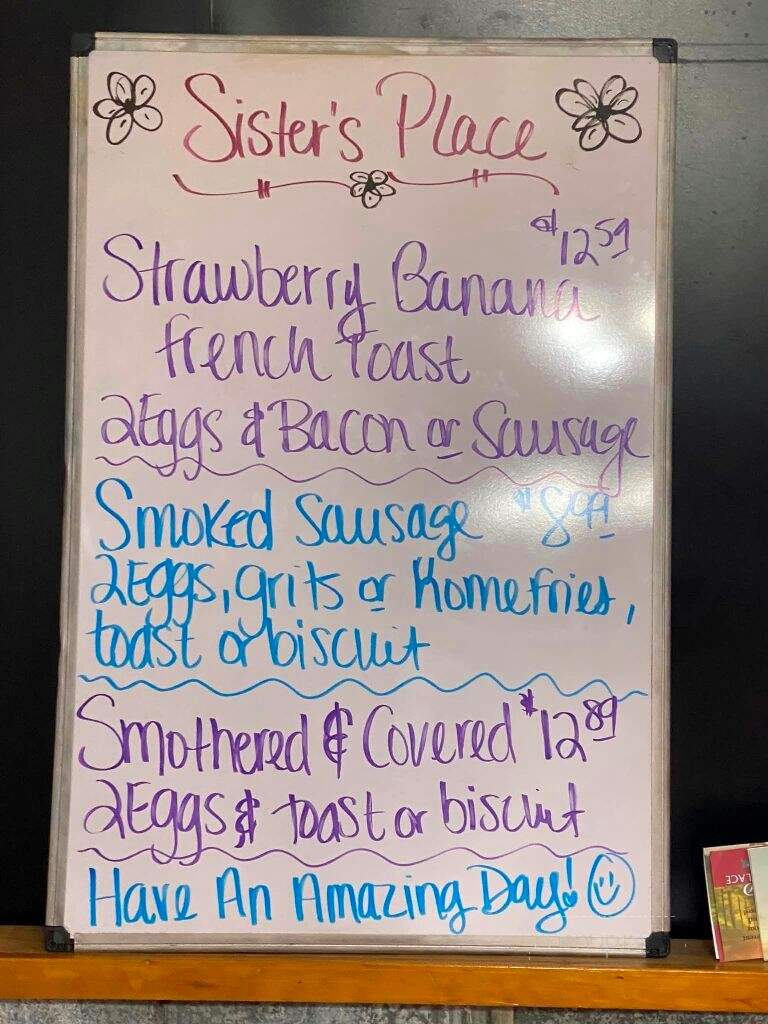 Sister's Place
$12.59
Strawberry Banana
French Toast
2Eggs & Bacon or Sausage
Smoked Sausage $8.99
2Eggs, grits or Homefries,
toast or biscuit
Smothered & Covered $12.89
2Eggs & toast or biscuit
Have An Amazing Day!
LACE